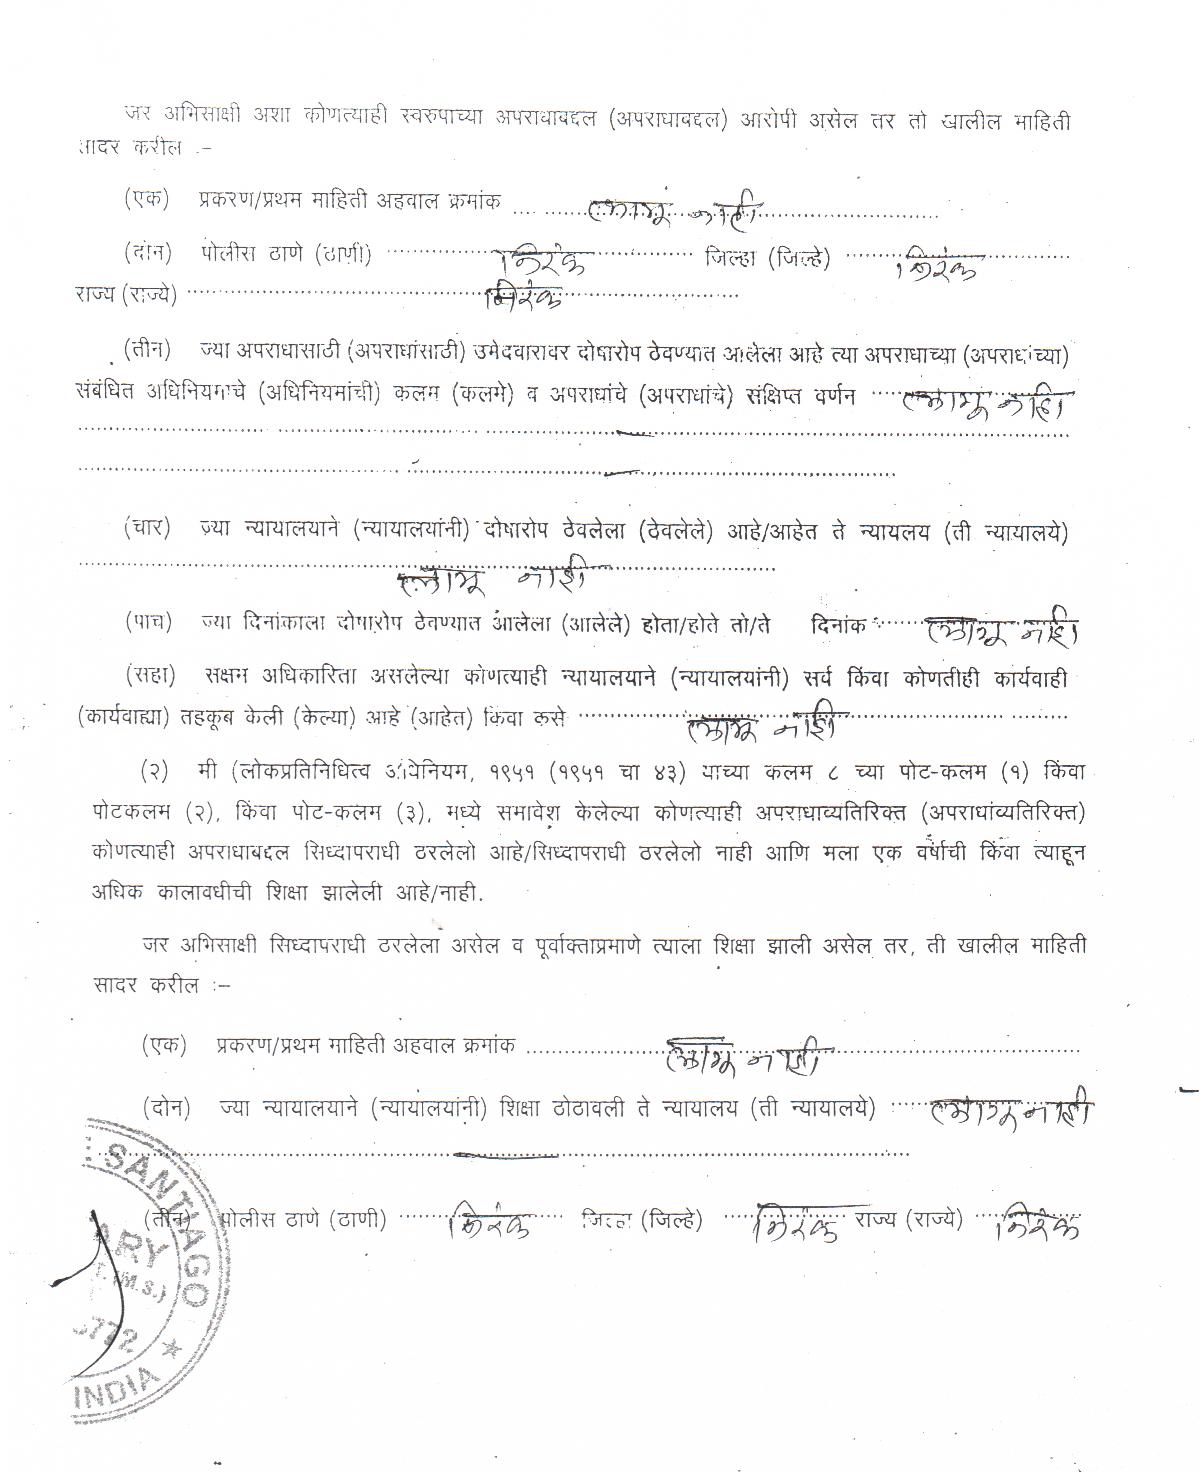 जर अभिसाक्षी अशा कोणत्याही स्वरुपाच्या अपराधाबद्दल (अपराधाबद्दल) आरोपी असेल तर तो खालील माहिती
सादर करील :-
(एक) प्रकरण/प्रथम माहिती अहवाल क्रमांक .... लागू नाही
(दोन) पोलीस ठाणे (ठाणी) निरंक जिल्हा (जिल्हे) निरंक
राज्य (राज्ये) निरंक
(तीन) ज्या अपराधासाठी (अपराधांसाठी) उमेदवारावर दोषारोप ठेवण्यात आलेला आहे त्या अपराधाच्या (अपराधांच्या)
संबंधित अधिनियमाचे (अधिनियमांची) कलम (कलमे) व अपराधांचे (अपराधांचे) संक्षिप्त वर्णन लागू नाही
(चार) ज्या न्यायालयाने (न्यायालयांनी) दोषारोप ठेवलेला (ठेवलेले) आहे/आहेत ते न्यायलय (ती न्यायालये)
लागू नाही
(पाच) ज्या दिनांकाला दोषारोप ठेवण्यात आलेला (आलेले) होता/होते तो/ते दिनांक लागू नाही
(सहा) सक्षम अधिकारिता असलेल्या कोणत्याही न्यायालयाने (न्यायालयांनी) सर्व किंवा कोणतीही कार्यवाही
(कार्यवाह्या) तहकूब केली (केल्या) आहे (आहेत) किंवा कसे लागू नाही
(२) मी (लोकप्रतिनिधित्व अधिनियम, १९५१ (१९५१ चा ४३) याच्या कलम ८ च्या पोट-कलम (१) किंवा
पोटकलम (२), किंवा पोट-कलम (३), मध्ये समावेश केलेल्या कोणत्याही अपराधाव्यतिरिक्त (अपराधांव्यतिरिक्त)
कोणत्याही अपराधाबद्दल सिध्दापराधी ठरलेलो आहे/सिध्दापराधी ठरलेलो नाही आणि मला एक वर्षाची किंवा त्याहून
अधिक कालावधीची शिक्षा झालेली आहे/नाही.
जर अभिसाक्षी सिध्दापराधी ठरलेला असेल व पूर्वाक्ताप्रमाणे त्याला शिक्षा झाली असेल तर, ती खालील माहिती
सादर करील :-
(एक) प्रकरण/प्रथम माहिती अहवाल क्रमांक लागू नाही
(दोन) ज्या न्यायालयाने (न्यायालयांनी) शिक्षा ठोठावली ते न्यायालय (ती न्यायालये) लागू नाही
(तीन) पोलीस ठाणे (ठाणी) निरंक जिल्हा (जिल्हे) निरंक राज्य (राज्ये) निरंक
SANTIAGO
ARY
(M.S.)
INDIA